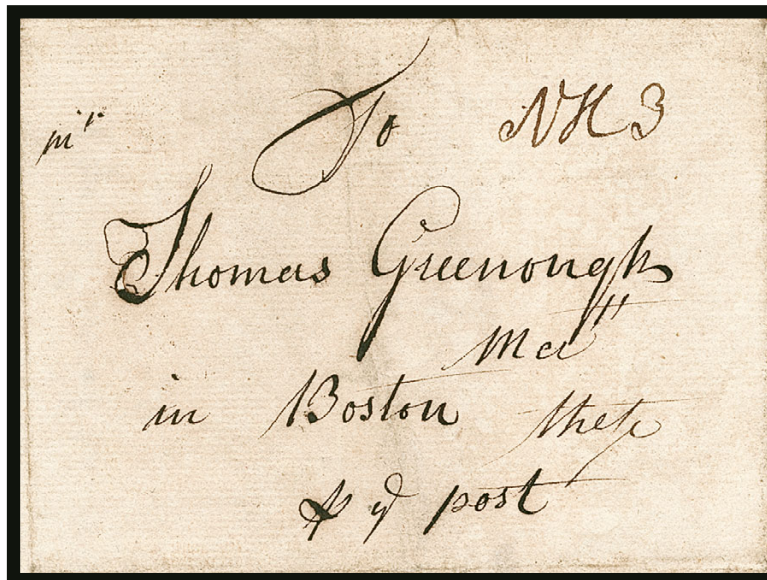 To NH 3
mr
Thomas Greenough
Mert
in Boston
these
⅌ ye post